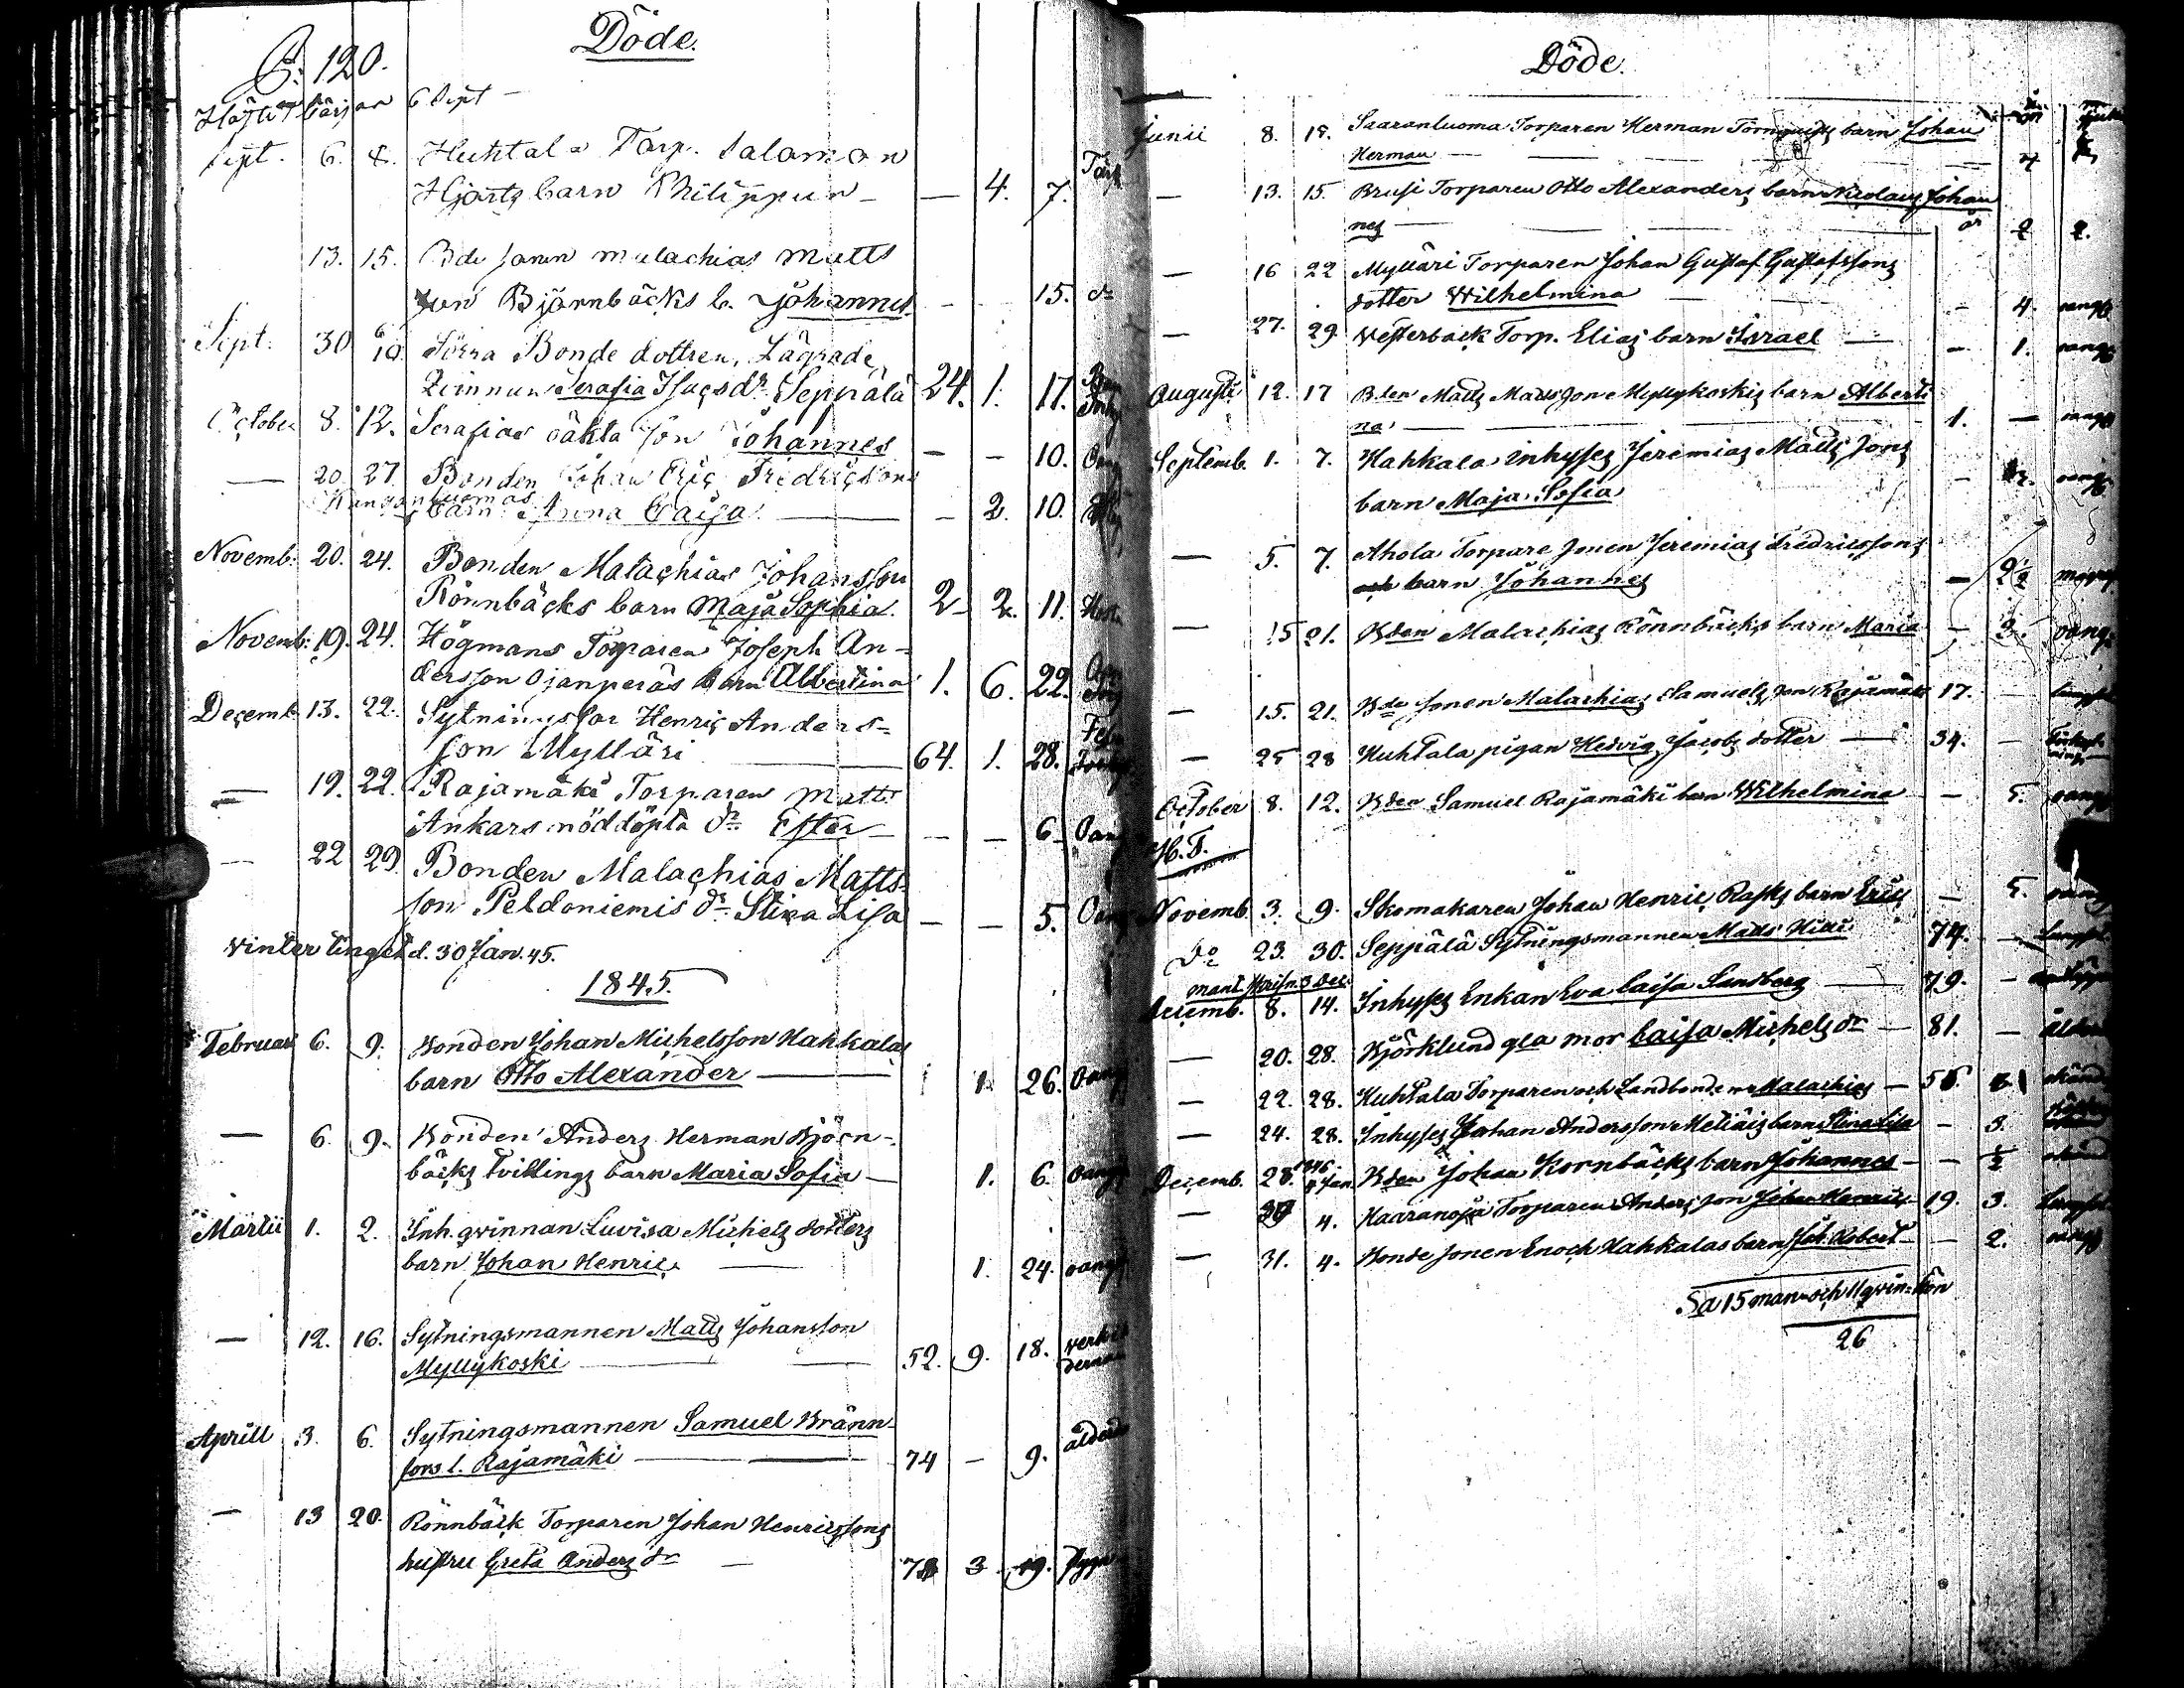 Döde.
P. 120.
Höste Tin början 6 Sept
Sept. 6. 8. Huhtala Torp. Salomon
Hjorts barn Philippus — — 4. 7.
13. 15. Bde sonen Malachias Matts
son Björnbäcks b. Johannes — - 15. do
Sept. 30 6/10. Södra Bonde dottren, Lägrade
Qvinnan Serafia Isacsdr Seppälä 24. 1. 17.
October 8. 12. Serafias oäkta son Johannes — - 10.
— 20. 27. Bonden Johan Eric Fredricsons
Kangasluomas barn Anna Caisa — - 2. 10.
Novemb. 20. 24. Bonden Malachias Johansson
Rönnbäcks barn Maja Sophia. 2 2. 11. Hosta
Novemb: 19. 24. Högmans Torparen Joseph An-
dersson Ojanperäs barn Albertina 1. 6. 22.
Decemb. 13. 22. Sytningsfar Henric Anders=
son Mylläri — 64. 1. 28.
— 19. 22. Rajamäki Torparen Matts
Ankars nöddöpta dr Ester — — — 6. Oang
— 22 29. Bonden Malachias Matts-
son Peldoniemis dr Stina Lisa — — 5. Oang
Vinter tinget d. 30 Jan. 45.
1845.
Februari 6. 9. Bonden Johan Michelsson Hahkalas
barn Otto Alexander — 1. 26. Oang
— 6. 9. Bonden Anders Herman Björn-
bäcks tvillings barn Maria Sofia — 1. 6. Oang
Martii 1. 2. Inh. qvinnan Luvisa Michels dotters
barn Johan Henric — 1. 24. oang
— 12. 16. Sytningsmannen Matts Johansson
Myllykoski — 52. 9. 18.
Aprill 3. 6. Sytningsmannen Samuel Bränn-
fors l. Rajamäki — 74 — 9. ålderd
— 13 20. Rönnbäck Torparen Johan Henricssons
hustru Greta Anders dr — 3. 19.
Döde.
Junii 8. 15. Saaranluoma Torparen Herman Törnqvists barn Johan
Herman —
— 13. 15. Brusi Torparen Otto Alexanders barn Nicolaus Johan
nes — 2 2.
— 16 22 Mylläri Torparen Johan Gustaf Gustafssons
dotter Wilhelmina — - 4. oang
— 27. 29. Westerback Torp. Elias barn Israel — - 1. oang
Augusti 12. 17 Bden Matts Mattsson Myllykoskis barn Alberti
na — 1. — oang
Septemb. 1. 7. Hahkala inhyses Jeremias Matts Sons
barn Maja Sofia — oang
— 5. 7. Ahola Torpare sonen Jeremias Fredricssons
barn Johannes — 2½
— 15 21. Bden Malachias Rönnbäcks barn Maria — 3. oang
— 15. 21. Bde sonen Malachias Samuels son Rajamäki 17. — lungsot
— 25 28 Huhtala pigan Hedvig Jacobs dotter — 34. —
October 8. 12. Bden Samuel Rajamäki barn Wilhelmina — 5. oang
H. T.
Novemb. 3. 9. Skomakaren Johan Henric Rasks barn Eric — 5. oang
Do 23. 30. Seppälä Sytningsmannen Matts 74. — Lungsot
mant. skrifn. 3 Dec.
Decemb. 8. 14. Inhyses Enkan Eva Caisa Sandberg — 79. —
— 20. 28. Björklund gla mor Caisa Michels dr — 81. — ålder
— 22. 28. Huhtala Torparen och Landbonden Malachias —
— 24. 28. Inhyses Johan Andersson Metiäis barn Stina Lisa — 3.
Decemb. 28. 1846 4 Jan. Bden Johan Kornbäcks barn Johannes — — ½
— 4. Haaranoja Torparen Anders son Johan Henric 19. 3. Lungsot
— 31. 4. Bonde sonen Enoch Hahkalas barn Joh. Robert — — 2. oang
Sa 15 man- och 11 qvin-kön
26